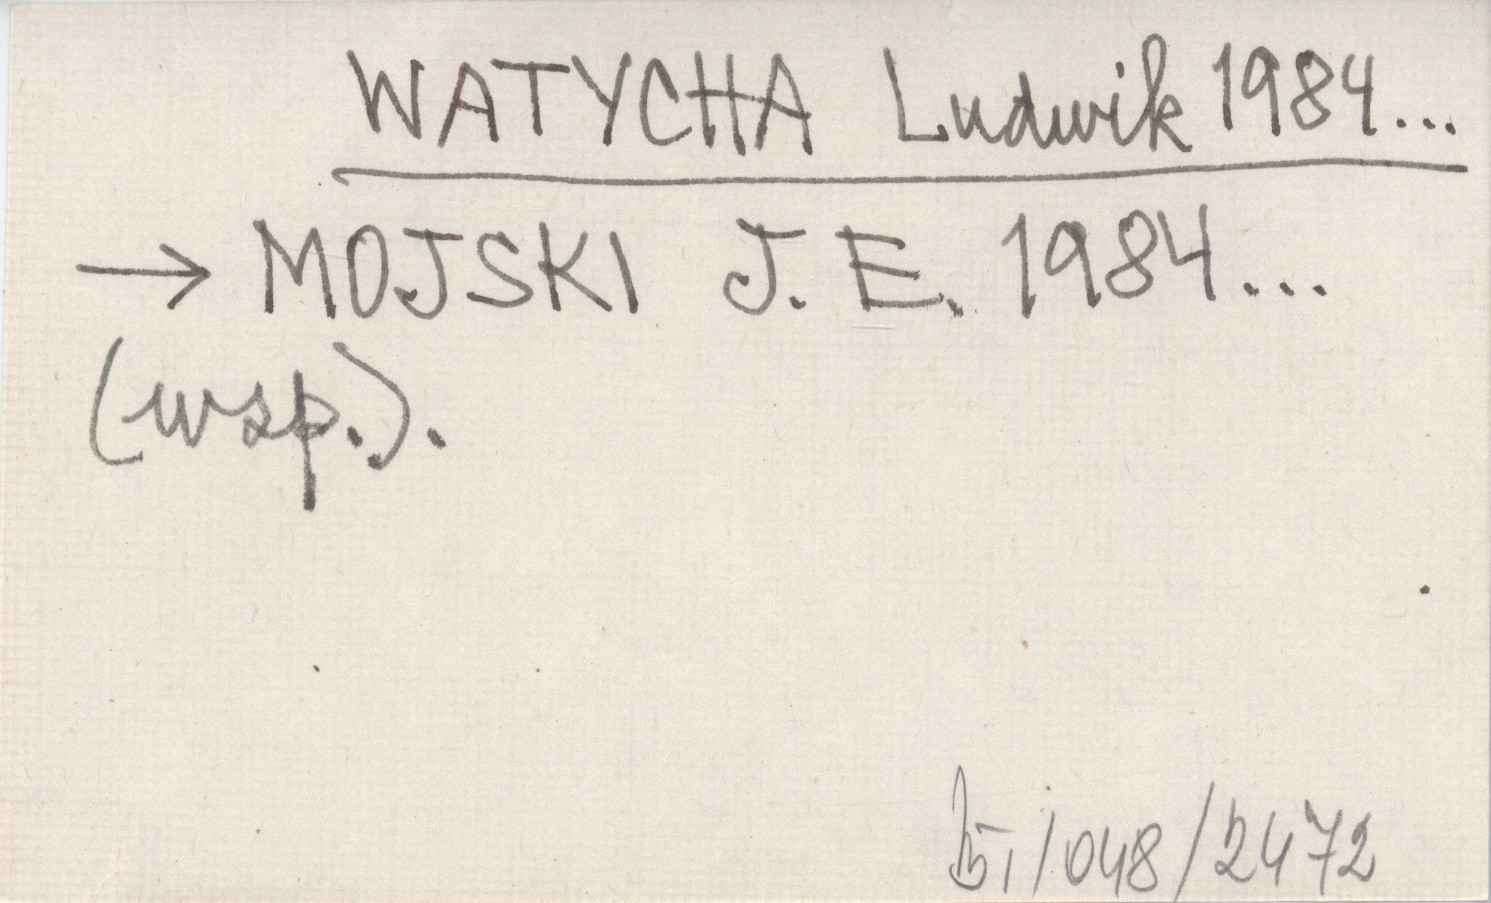 WATYCHA Ludwik 1984...
→ MOJSKI J. E. 1984...
(wsp.).
/048/2472